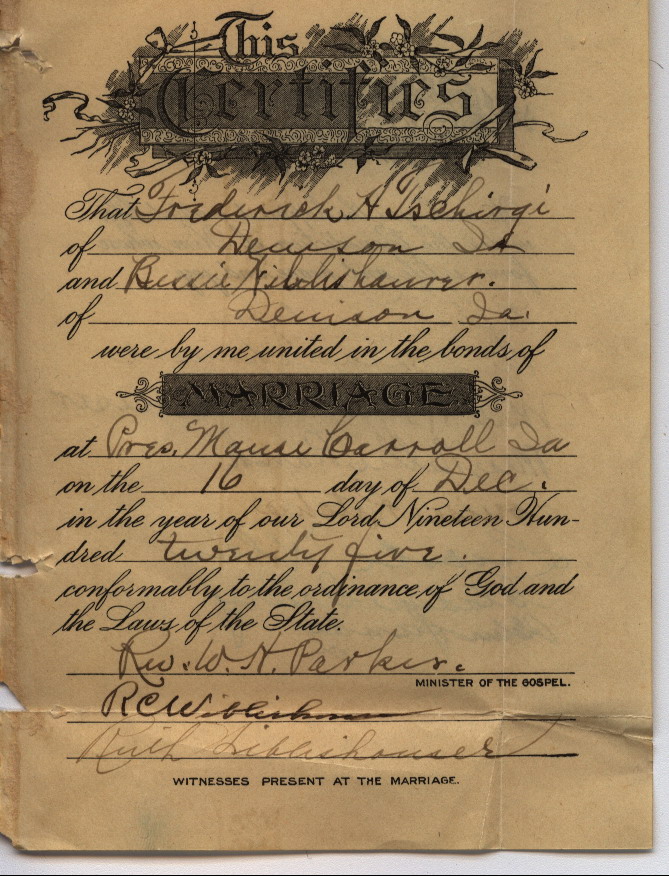 This
Certifies
That Frederick H Tschirgi
of Denison Ia
and Bessie Wiblishauser.
of Denison Ia.
were by me united in the bonds of
MARRIAGE
at Pres. Manse Carroll Ia
on the 16 day of Dec.
in the year of our Lord Nineteen Hun-
dred twenty five.
conformably to the ordinance of God and
the Laws of the State.
Rev. W. H. Parker.
MINISTER OF THE GOSPEL.
R C
Ruth Wiblishauser
WITNESSES PRESENT AT THE MARRIAGE.